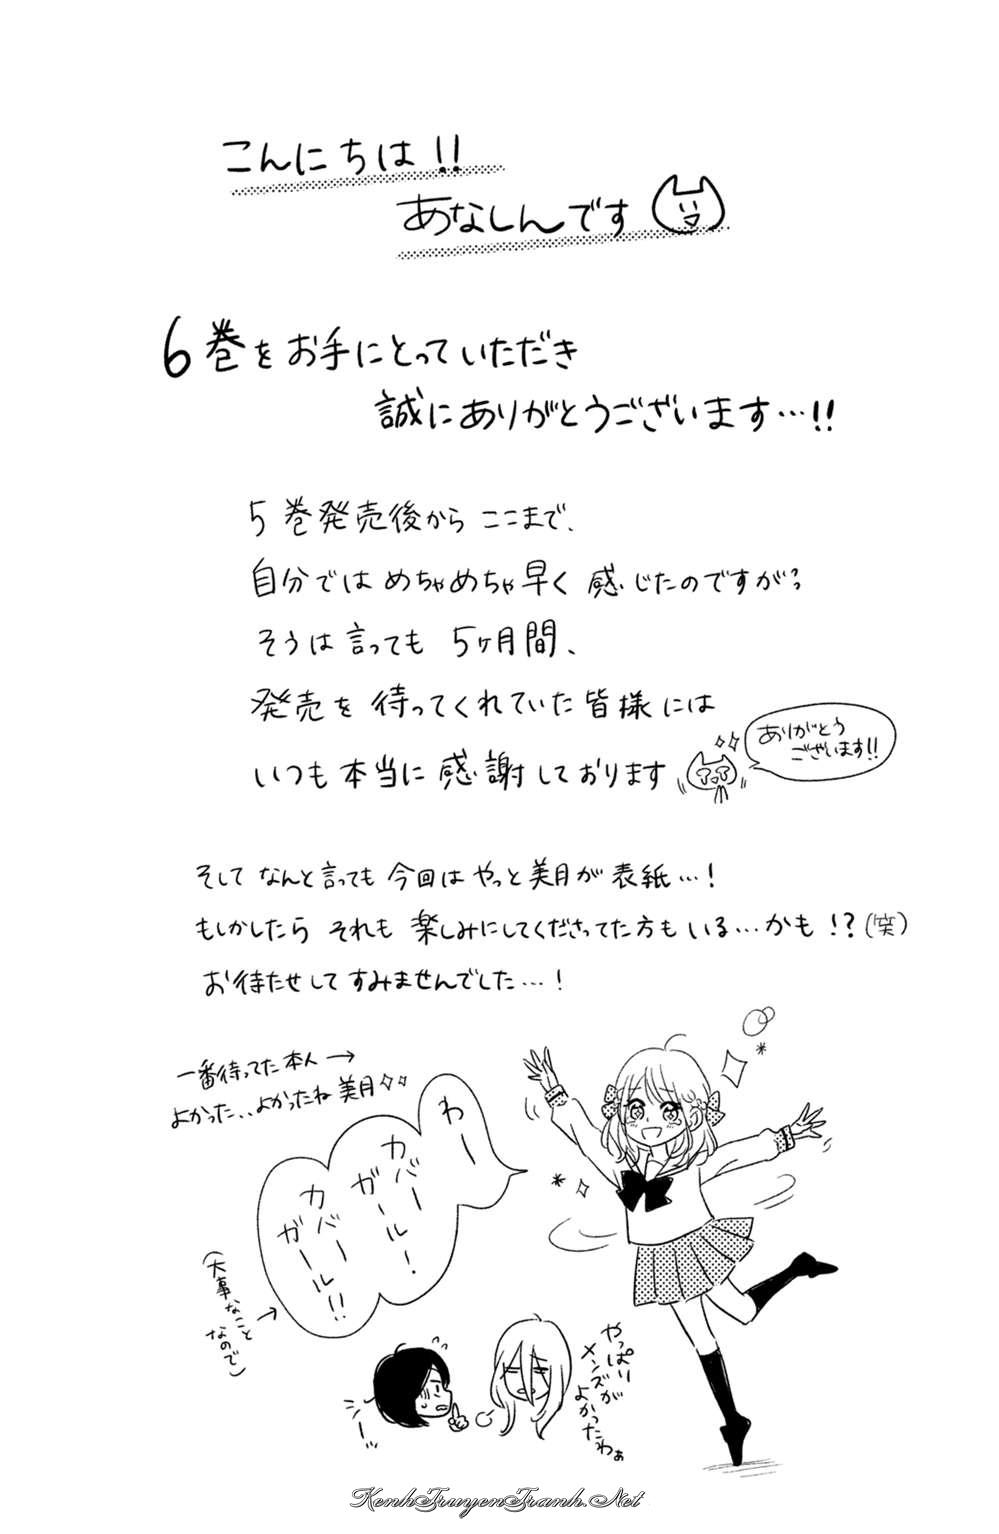 こんにちは!!
あなしんです
6巻をお手にとっていただき
誠にありがとうございます…!!
5巻発売後からここまで、
自分ではめちゃめちゃ早く感じたのですが
そうは言っても5ヶ月間、
発売を待ってくれていた皆様には
いつも本当に感謝しております
ありがとう
ございます!!
そしてなんと言っても今回はやっと美月が表紙…!
もしかしたらそれも楽しみにしてくださってた方もいる…かも!?(笑)
お待たせしてすみませんでした…!
一番待ってた本人→
よかった..よかったね美月
わー
カバー
ガール!
カバー
ガール!!
(大事なこと
なので)
やっぱり
メンズが
よかったわぁ
シーッ
KenhTruyenTranh.Net